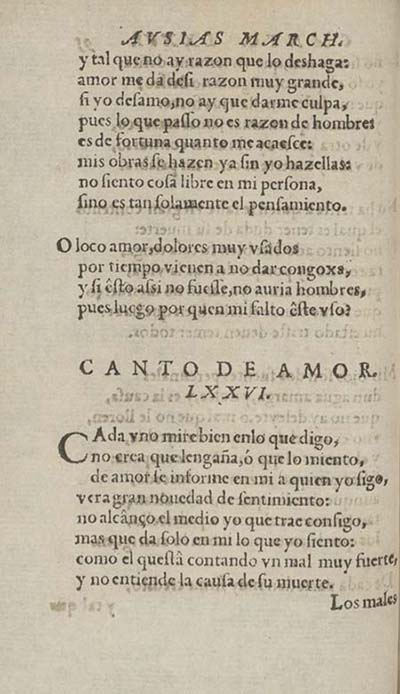 AVSIAS MARCH.
y tal que no ay razon que lo deshaga:
amor me da desi razon muy grande,
si yo desamo, no ay que darme culpa,
pues lo que passo no es razon de hombres
es de fortuna quanto me acaesce:
mis obras se hazen ya sin yo hazellas:
no siento cosa libre en mi persona,
sino es tan solamente el pensamiento.
O loco amor, dolores muy vsados
por tiempo vienen a no dar congoxs,
y si ésto assi no fuesse, no auria hombres,
pues luego por quen mi falto éste vso?
CANTO DE AMOR.
LXXVI.
CAda vno mire bien enlo que digo,
no crea que lengaña, ó que lo miento,
de amor se informe en mi a quien yo sigo,
vera gran nouedad de sentimiento:
no alcânço el medio yo que trae consigo,
mas que da solo en mi lo que yo siento:
como el questâ contando vn mal muy fuerte,
y no entiende la causa de su muerte.
Los males